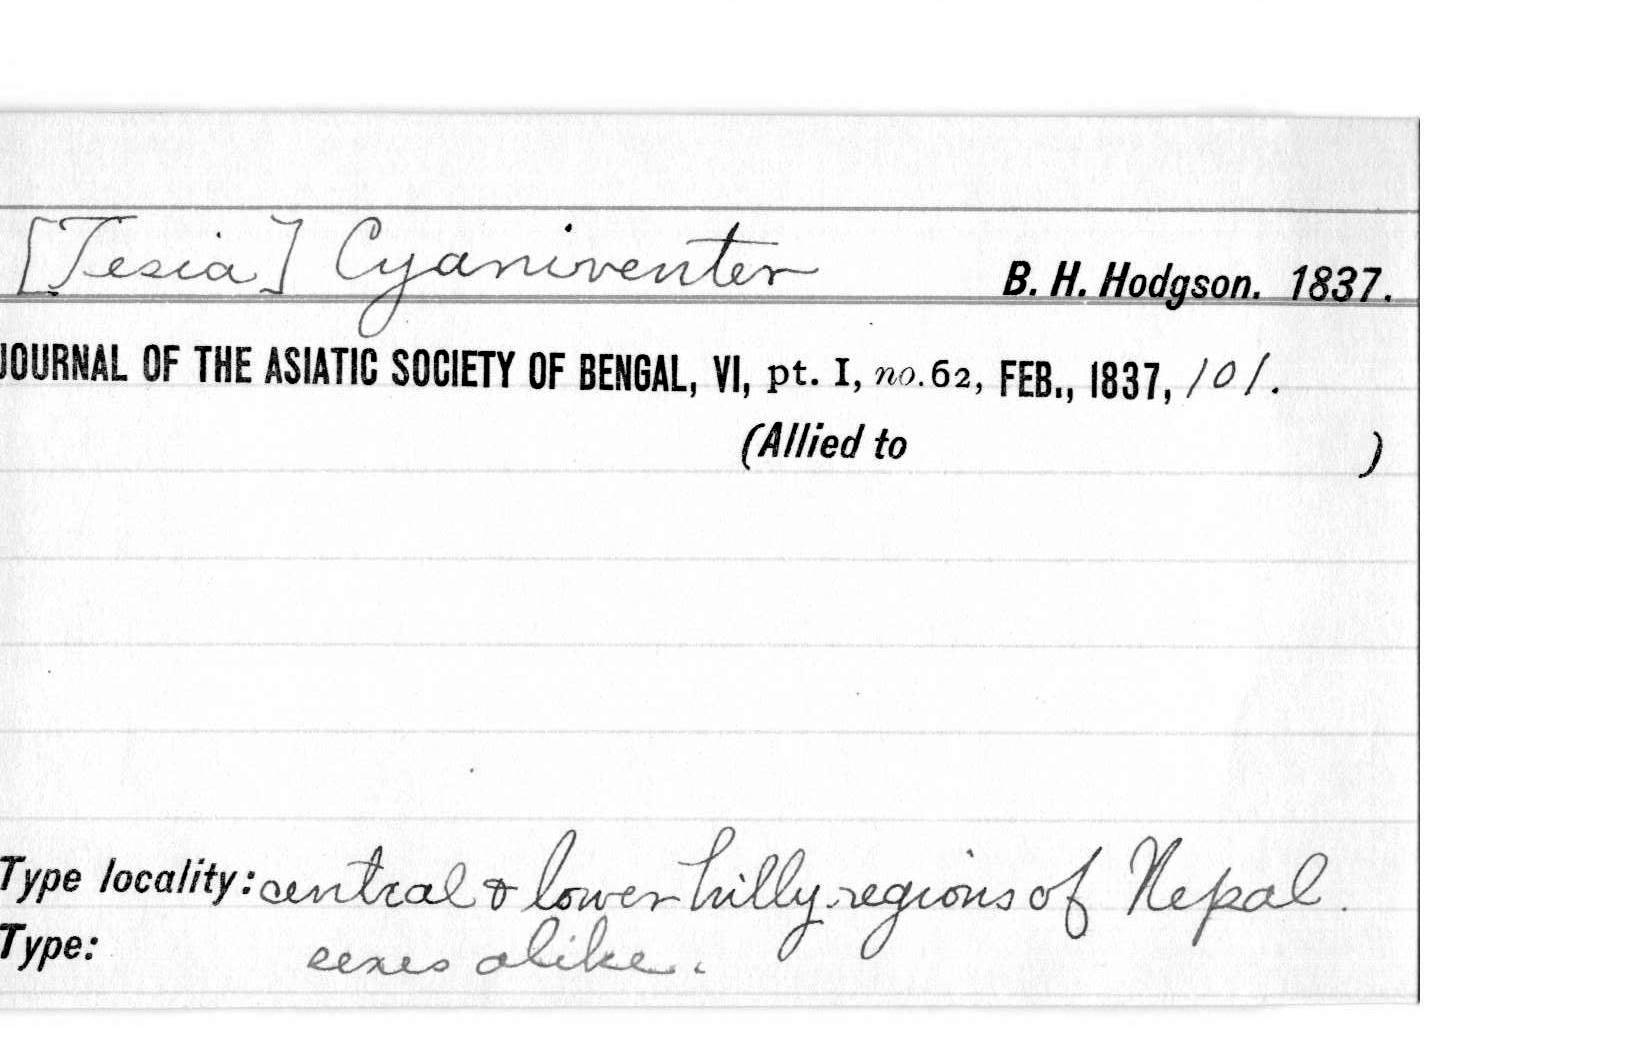 [Tesia] Cyaniventer B. H. Hodgson. 1837.
JOURNAL OF THE ASIATIC SOCIETY OF BENGAL, VI, pt. I, no.62, FEB., 1837, 101.
(Allied to )
Type locality: central & lower hilly regions of Nepal.
Type: sexes alike.